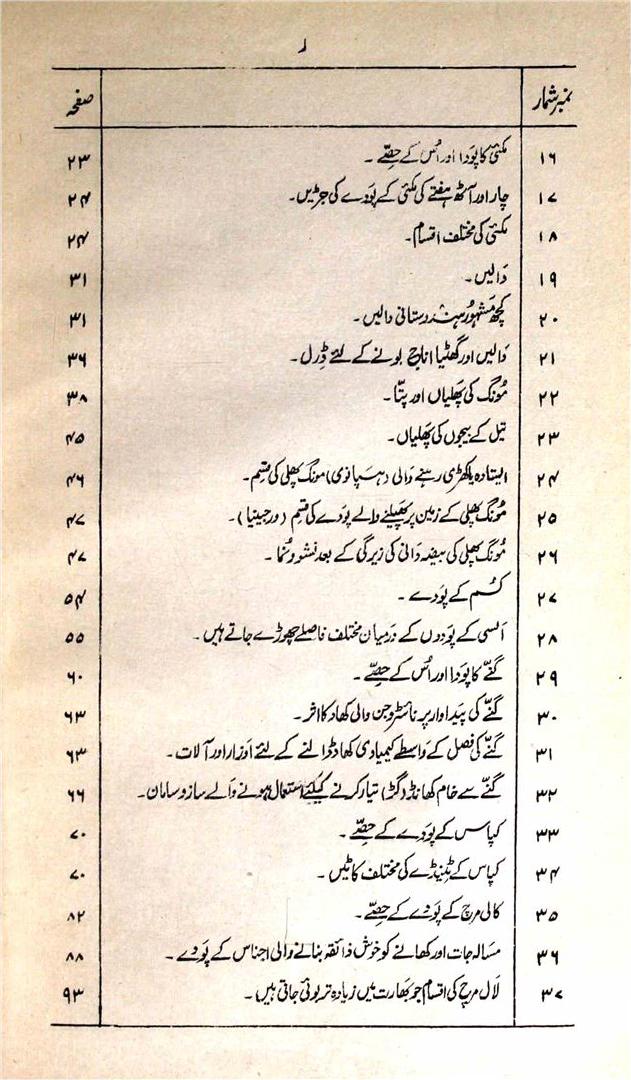 ر
نمبر شمار صفحہ
۱۶ مکئی کا پودا اور اُس کے حِصّے ۔ ۲۳
۱۷ چار اور آٹھ ہفتے کی مکئی کے پودے کی جڑیں۔ ۲۴
۱۸ مکئی کی مختلف اقسام۔ ۲۴
۱۹ دَالیں۔ ۳۱
۲۰ کچھ مَشہُور ہندوستانی دالیں۔ ۳۱
۲۱ دَالیں اور گھٹیا اناج بونے کے لئے ڈرل۔ ۳۶
۲۲ مُونگ کی پَھلیاں اور پتّا۔ ۳۸
۲۳ تیل کے بیجوں کی پَھلیاں۔ ۴۵
۲۴ ایستادہ یا کھڑی رہنے والی (ہسپانوی) مُونگ پھلی کی قِسم۔ ۴۶
۲۵ مُونگ پھلی کے زمین پر پھیلنے والے پودے کی قِسم (ورجینیا)۔ ۴۷
۲۶ مُونگ پھلی کی بیضہ دَانی کی زیرگی کے بعد نشوونُما ۔ ۴۷
۲۷ کسُم کے پَودے ۔ ۵۴
۲۸ اَلسی کے پَودوں کے دَرمیان مختلف فاصلے چھوڑے جاتے ہیں ۔ ۵۵
۲۹ گنّے کا پَودا اور اُس کے حِصّے ۔ ۶۰
۳۰ گنّے کی پَیداوار پر نائٹروجن والی کھاد کا اثر۔ ۶۳
۳۱ گنّے کی فصل کے واسطے کیمیاوی کھاد ڈالنے کے لئے اَوزار اور آلات۔ ۶۳
۳۲ گنّے سے خام کھانڈ (گُڑ) تیار کرنے کیلئے استعمال ہونے والے سازوسامان۔ ۶۶
۳۳ کپاس کے پودے کے حِصّے ۔ ۷۰
۳۴ کپاس کے ٹینڈے کی مختلف کاٹیں ۔ ۷۰
۳۵ کالی مرچ کے پَودے کے حِصّے ۔ ۸۲
۳۶ مسالہ جات اور کھانے کو خوش ذائقہ بنانے والی اجناس کے پَودے ۔ ۸۸
۳۷ لال مرچ کی اقسام جو بھارت میں زیادہ تر بوئی جاتی ہیں ۔ ۹۳